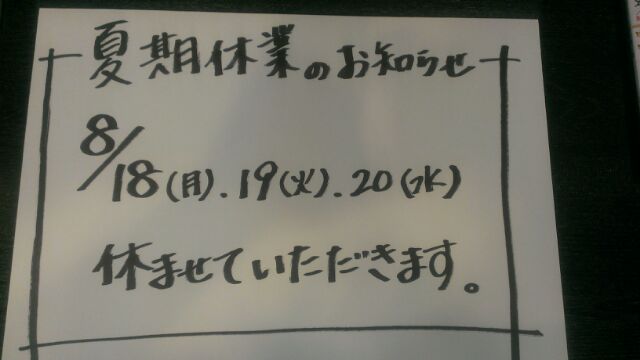 夏期休業のお知らせ
8/18(月).19(火).20(水)
休ませていただきます。